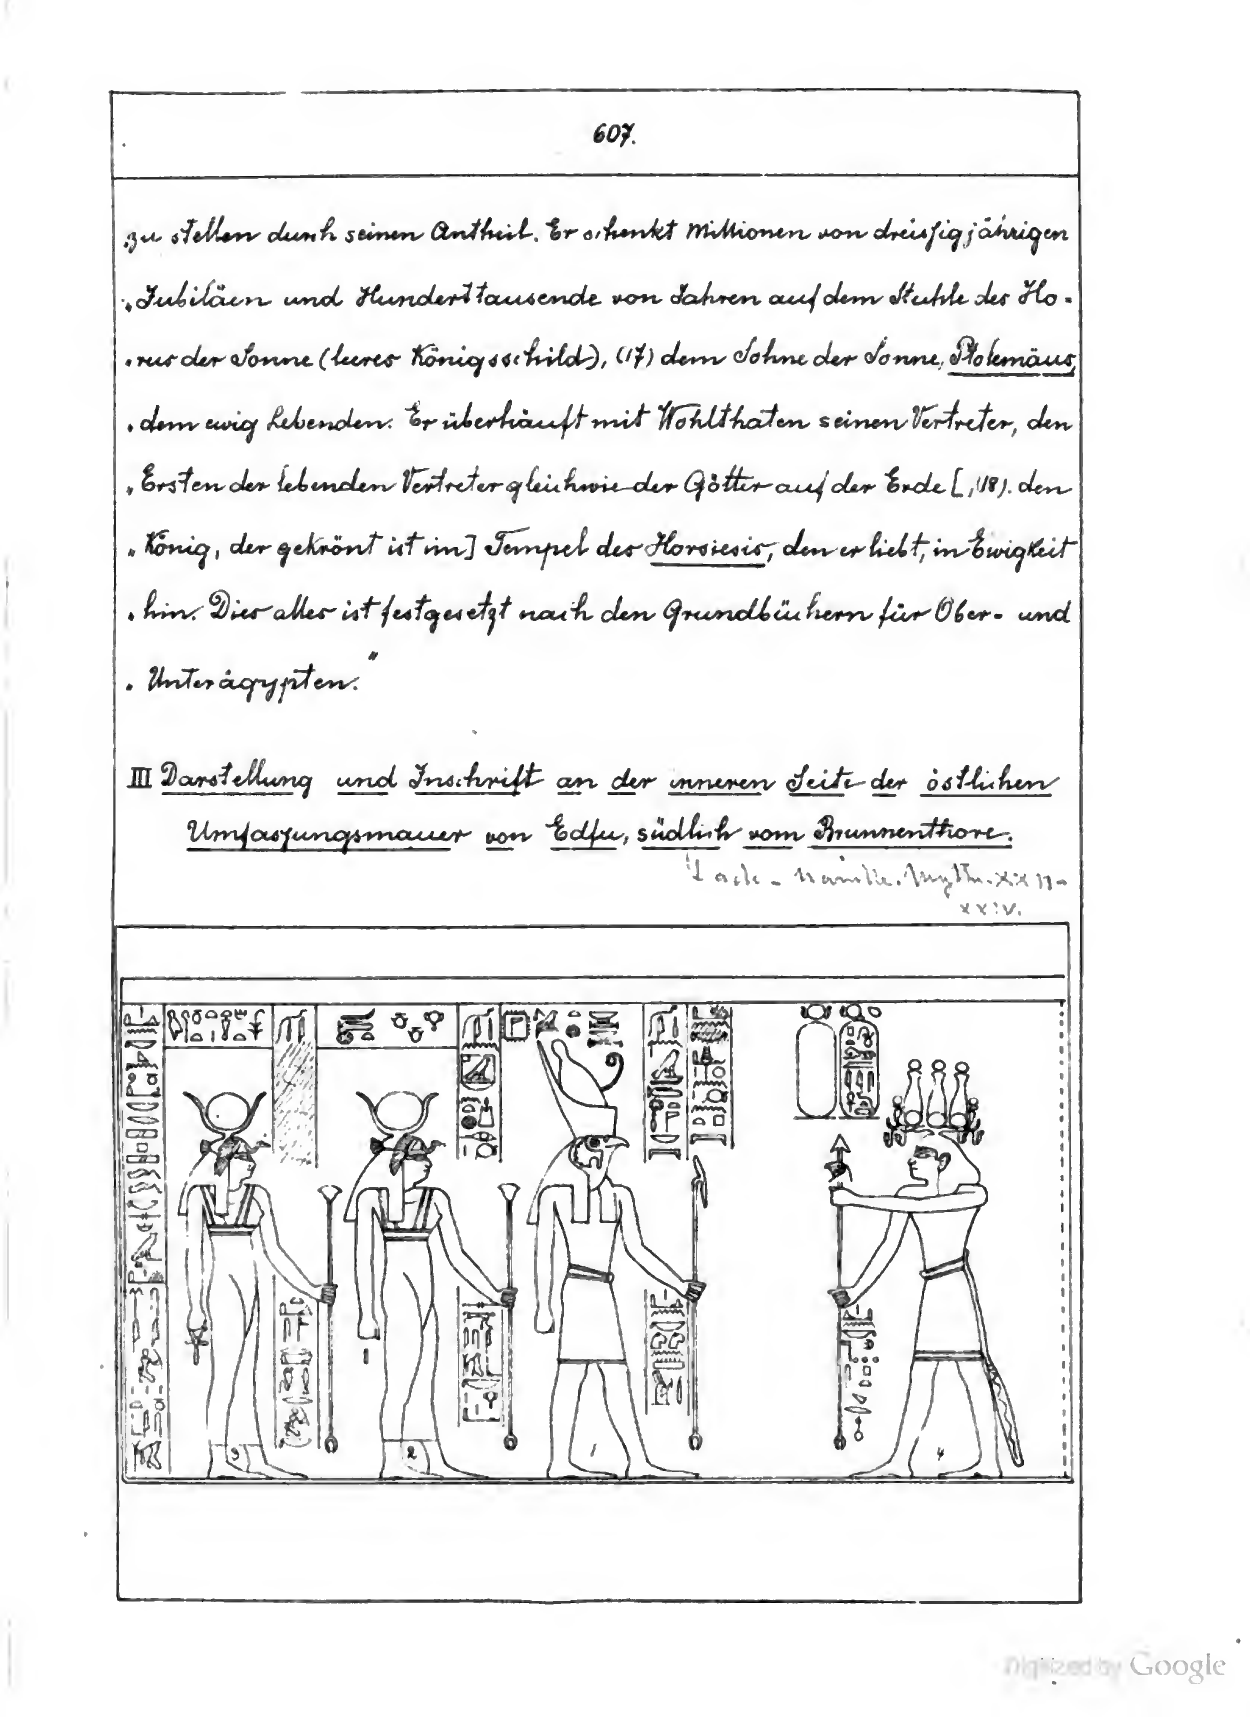 607.
„zu stellen durch seinen Antheil. Er schenkt Millionen von dreissigjährigen
„Jubiläen und Hunderttausende von Jahren auf dem Stuhle des Ho-
„rus der Sonne (leeres Königsschild), (17) dem Sohne der Sonne, Ptolemäus,
„dem ewig Lebenden. Er überhäuft mit Wohlthaten seinen Vertreter, den
„Ersten der lebenden Vertreter gleichwie der Götter auf der Erde [, (18). den
„König, der gekrönt ist im] Tempel des Horsiesis, den er liebt, in Ewigkeit
„hin. Dies alles ist festgesetzt nach den Grundbüchern für Ober- und
„Unterägypten."
III Darstellung und Inschrift an der inneren Seite der östlichen
Umfassungsmauer von Edfu, südlich vom Brunnenthore.
Naville. Myth. XXII-
XXIV.
3 2 1 4
Digitized by Google